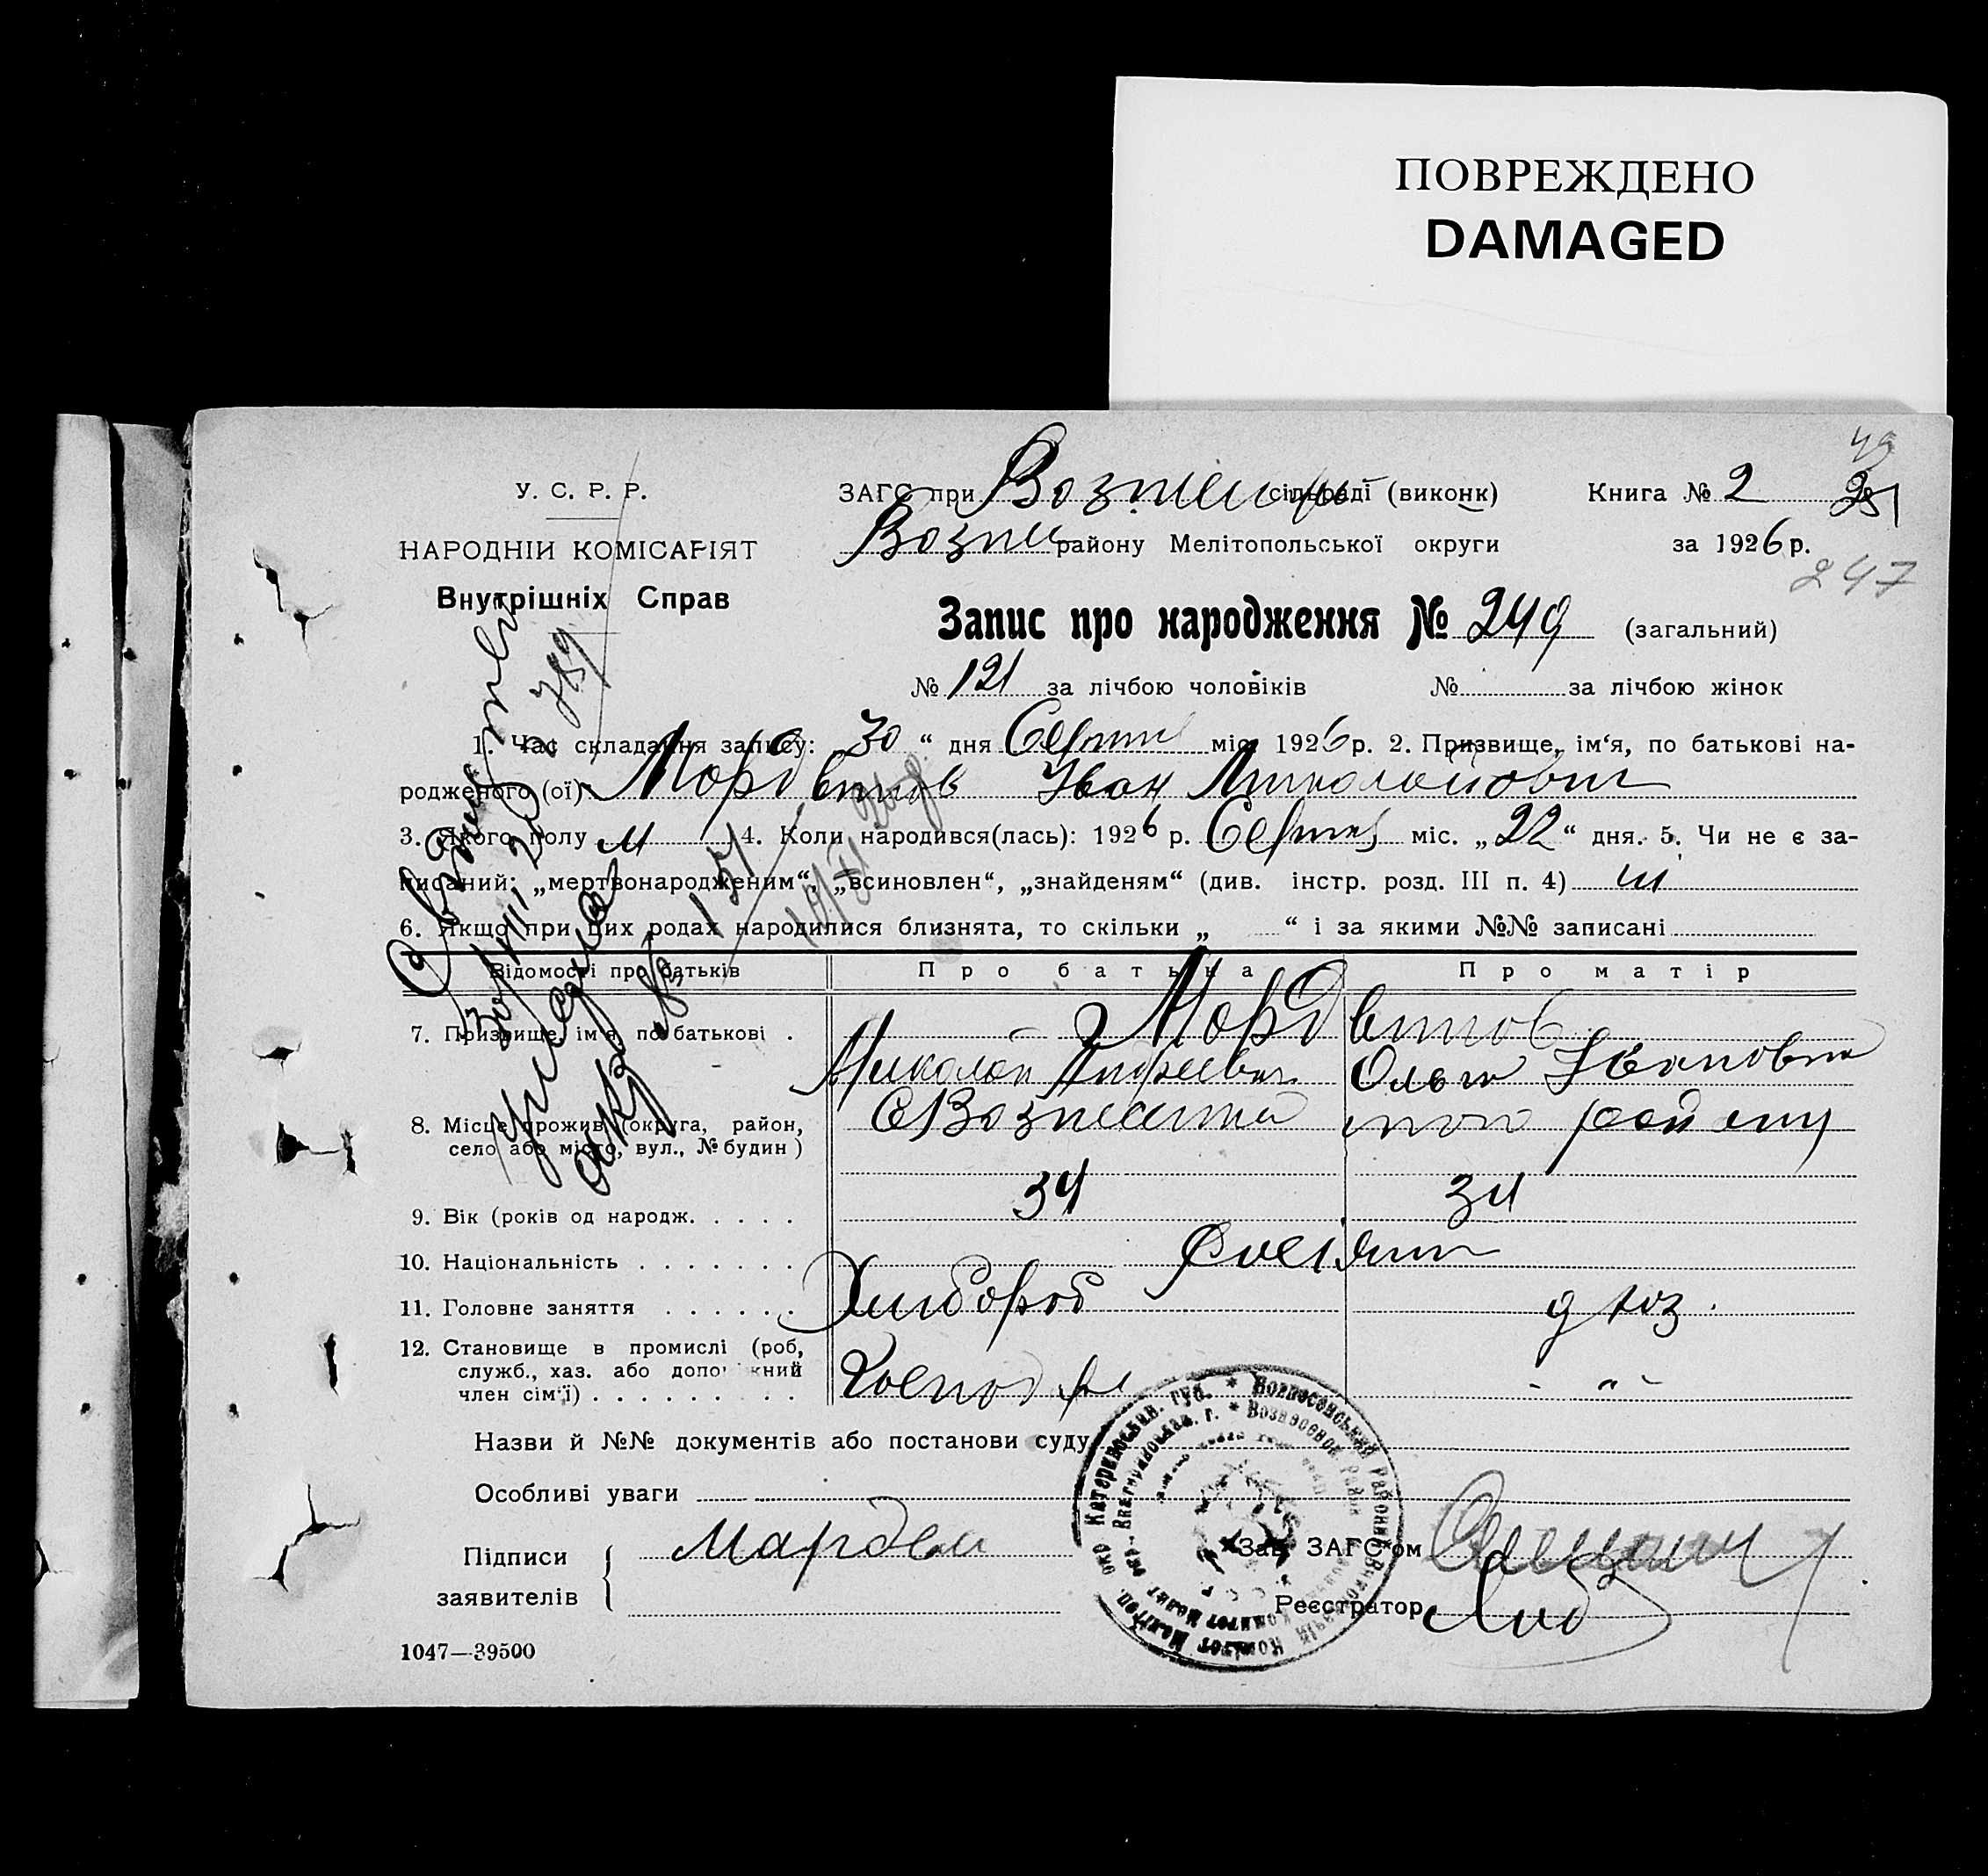 ПОВРЕЖДЕНО
DAMAGED
49
У. С. Р. Р.
ЗАГС при сільраді (виконк) Книга № 2
НАРОДНІЙ КОМІСАРІЯТ
Возне району Мелітопольської округи за 1926 р.
247
Внутрішніх Справ
Запис про народження № 249 (загальний)
№ 121 за лічбою чоловіків № за лічбою жінок
1. Час складання запису: „30“ дня Серпня міс. 1926 р. 2. Призвище, ім‘я, по батькові на-
родженого (ої): Мордвинов Іван Миколайович
3. Якого полу м 4. Коли народився(лась): 1926 р. Серпня міс. „22“ дня. 5. Чи не є за-
писаний: „мертвонародженим“, „всиновлен“, „знайденям“ (див. інстр. розд. III п. 4) ні
6. Якщо при цих родах народилися близнята, то скільки „ “ і за якими №№ записані
Відомості про батьків Про батька Про матір
7. Призвище, ім‘я, по батькові . Мордвинов
Миколай Андреевич Ольга Івановна
8. Місце прожив. (округа, район, с Вознесенка того району
село або місто, вул., № будин)
9. Вік (років од народж. . . . . 34 34
10. Національність . . . . . . .
11. Головне заняття . . . . . . Хлібороб д хоз.
12. Становище в промислі (роб, Господар - „ -
служб., хаз. або допоміжний
член сім‘ї) . . . . . . . . .
Назви й №№ документів або постанови суду
Особливі уваги
Підписи Мардви Зав. ЗАГС‘ом
заявителів Реєстратор
1047—39500